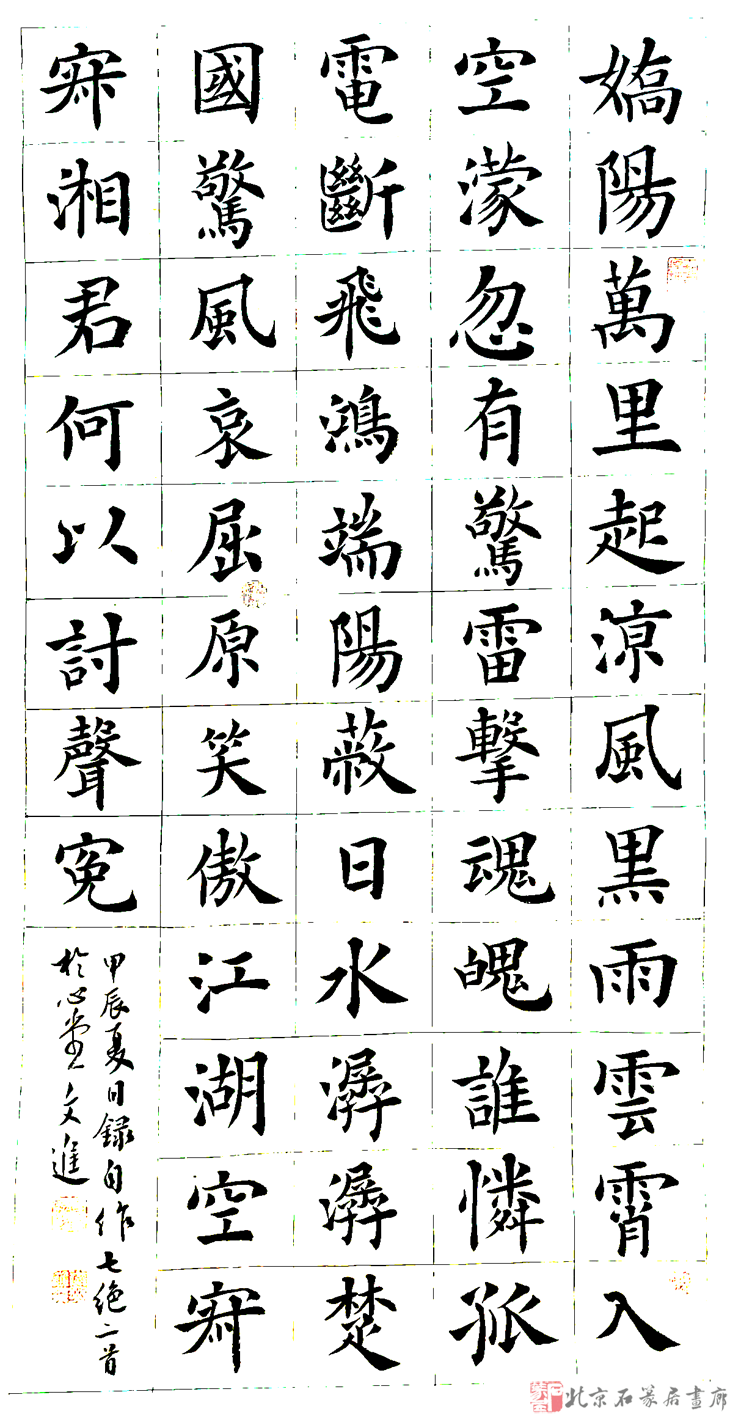 嬌陽萬里起涼風黑雨雲霄入
空濛忽有驚雷擊魂魄誰憐孤
電斷飛鴻端陽蔽日水潺潺楚
國驚風哀屈原笑傲江湖空寂
寂湘君何以討聲寃
甲辰夏日録自作七絶二首
於心堂文進
北京石篆居畫廊